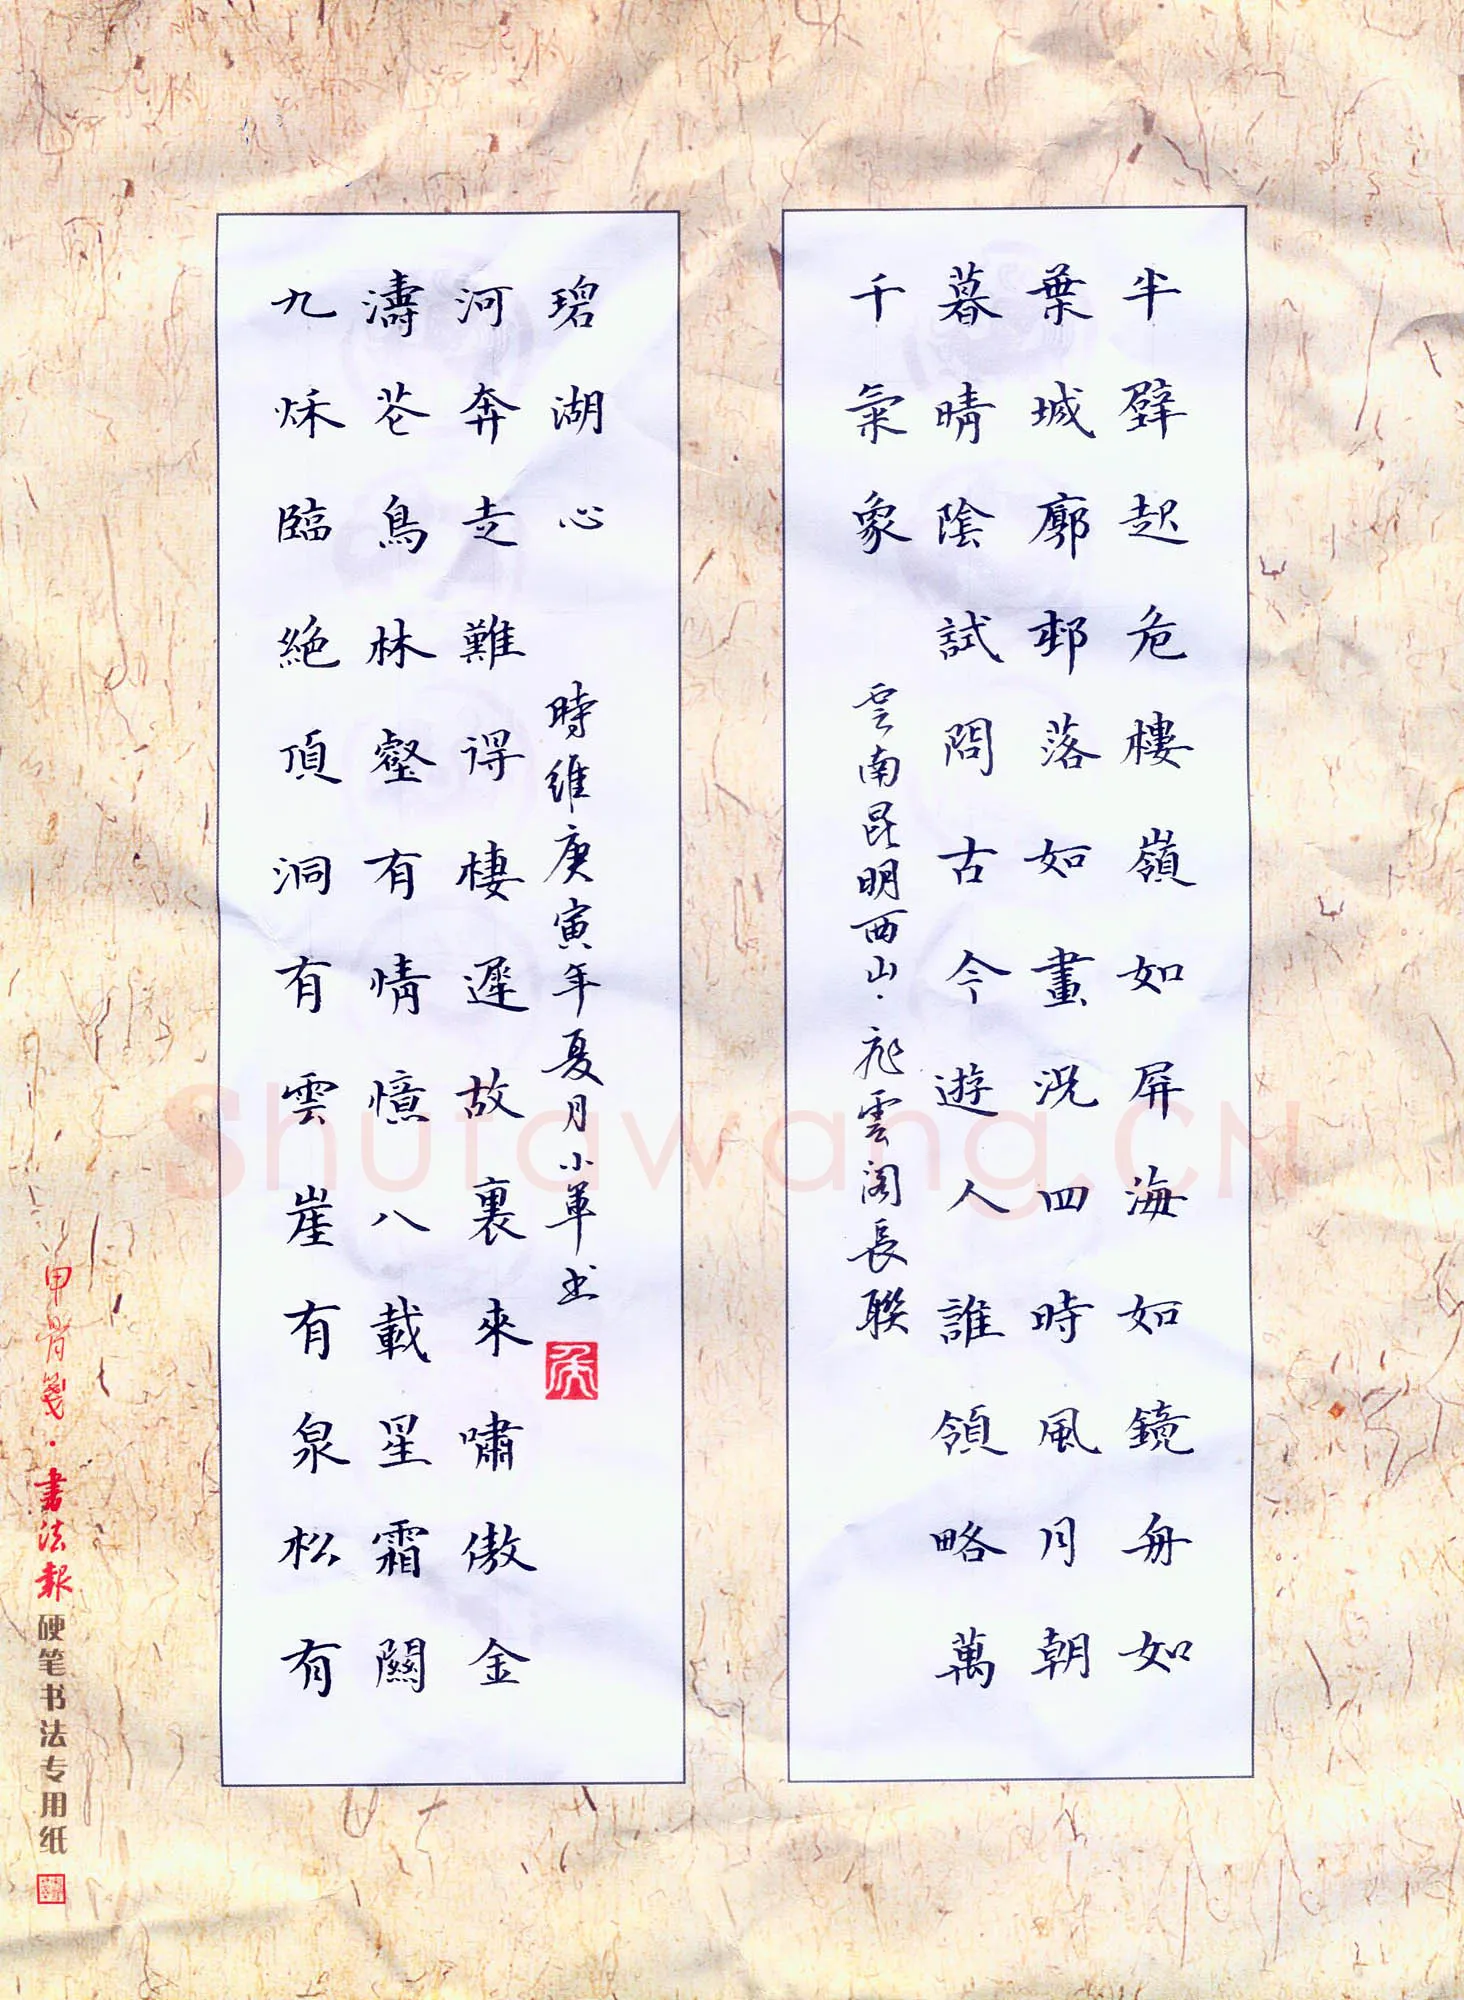 半壁起危樓嶺如屏海如鏡舟如
葉城廓邨落如畫況四時風月朝
暮晴陰試問古今遊人誰領略萬
千氣象
雲南昆明西山·飛雲閣長聯
九秌臨絕頂洞有雲崖有泉松有
濤花鳥林壑有情憶八載星霜關
河奔走難得棲遲故裏來嘯傲金
碧湖心
時維庚寅年夏月小軍书
甲骨箋·書法報硬笔书法专用纸
Shufawang.CN